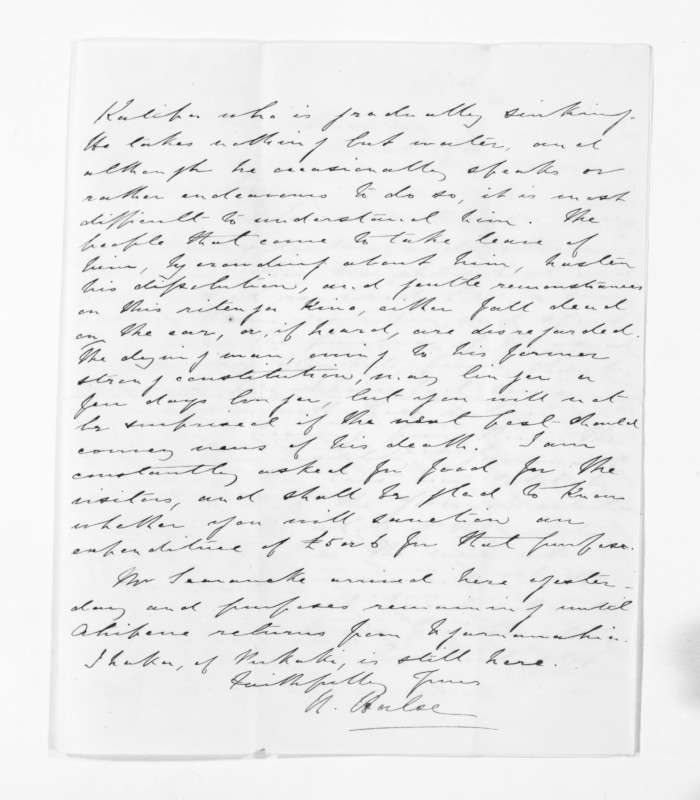 Katipa who is gradually sinking.
He takes nothing but water, and
although he occasionally speaks or
rather endeavours to do so, it is most
difficult to understand him. The
people that come to take leave of
him, by crowding about him, hasten
his dissolution, and gentle remonstrances
on this ritenga kino, either fall dead
on the ear, or, if heard, are disregarded.
The dying man, owing to his former
strong constitution, may linger a
few days longer, but you will not
be surprised if the next post should
convey news of his death. I am
constantly asked for food for the
visitors, and shall be glad to know
whether you will sanction an
expenditure of £5 or 6 for that purpose.
Mr arrived here yester-
day and purposes remaining until
Ahipene returns from
Ihaka, of Pukaki, is still here.
Faithfully Yours
N. Hulse